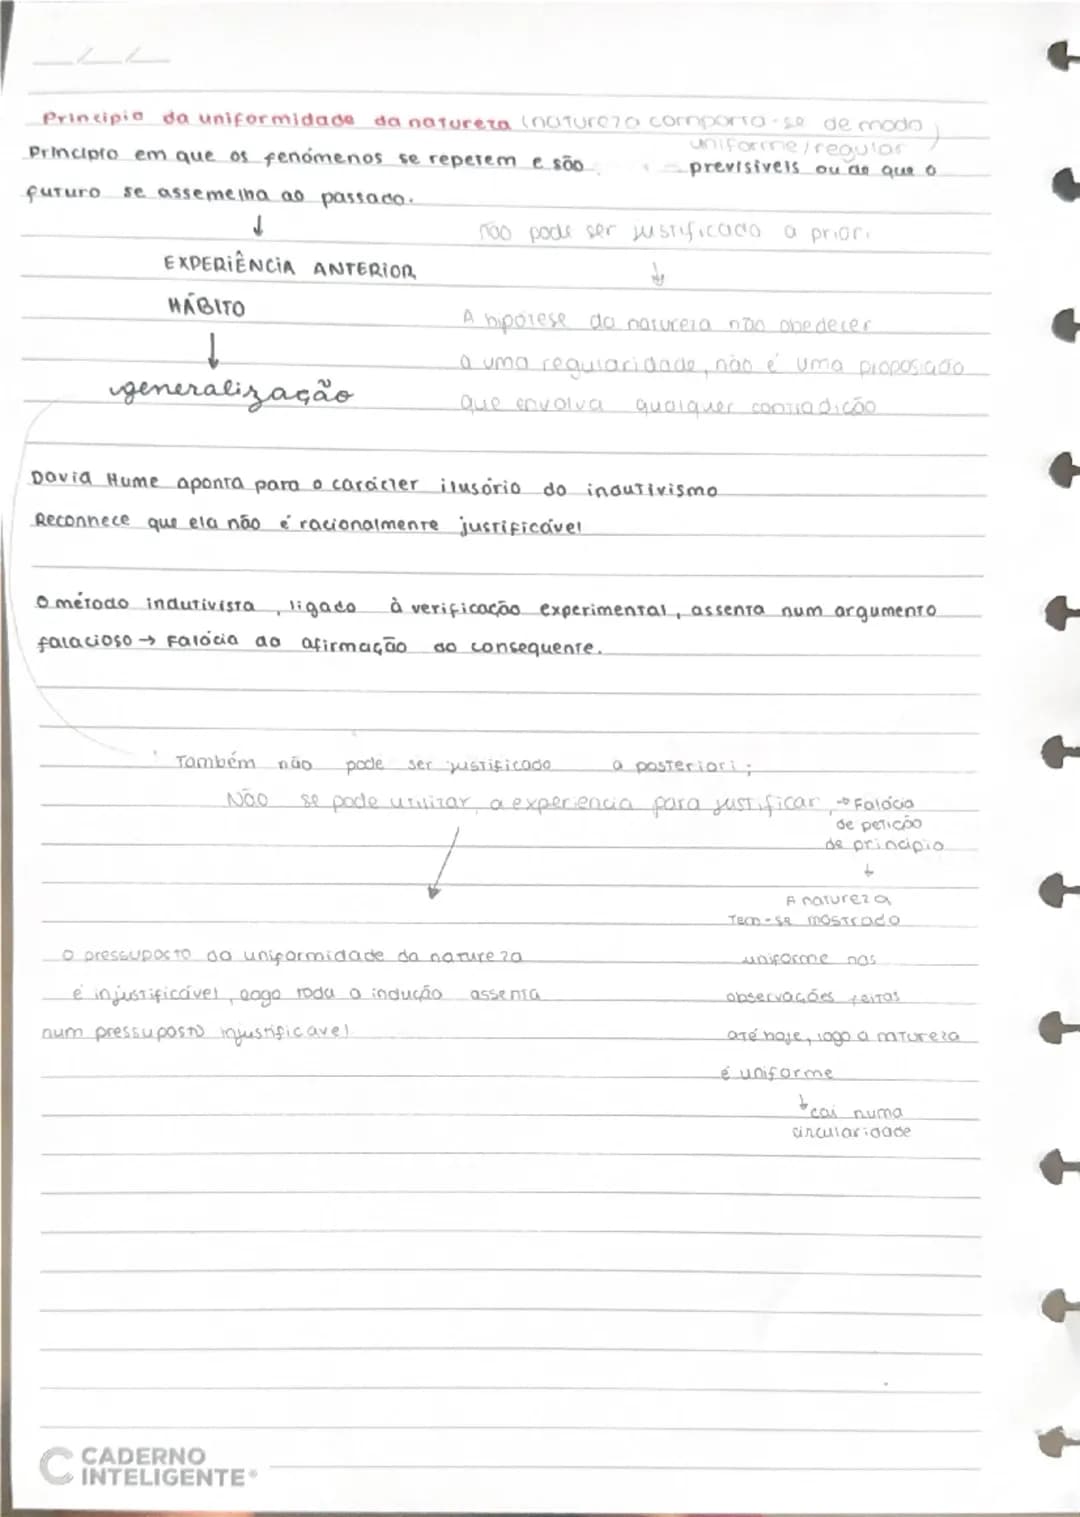 Princípio da uniformidade da natureza (natureza comporta-se de modo
uniforme/regular)
Princípio em que os fenómenos se repetem e são previsíveis ou de que o
futuro se assemelha ao passado.
↓
não pode ser justificado a priori
EXPERIÊNCIA ANTERIOR
↓
HÁBITO
A hipótese da natureza não obedecer
↓
a uma regularidade, não é uma proposição
generalização
que envolva qualquer contradição
David Hume aponta para o carácter ilusório do indutivismo
Reconhece que ela não é racionalmente justificável
O método indutivista, ligado à verificação experimental, assenta num argumento
falacioso → Falácia da afirmação do consequente.
Também não pode ser justificado a posteriori;
Não se pode utilizar a experiencia para justificar → Falácia
de petição
de princípio
↓
A natureza
tem-se mostrado
O pressuposto da uniformidade da natureza
uniforme nas
é injustificável, logo toda a indução assenta
observações feitas
num pressuposto injustificavel
até hoje, logo a natureza
é uniforme
↓ cai numa
circularidade
CADERNO
INTELIGENTE®